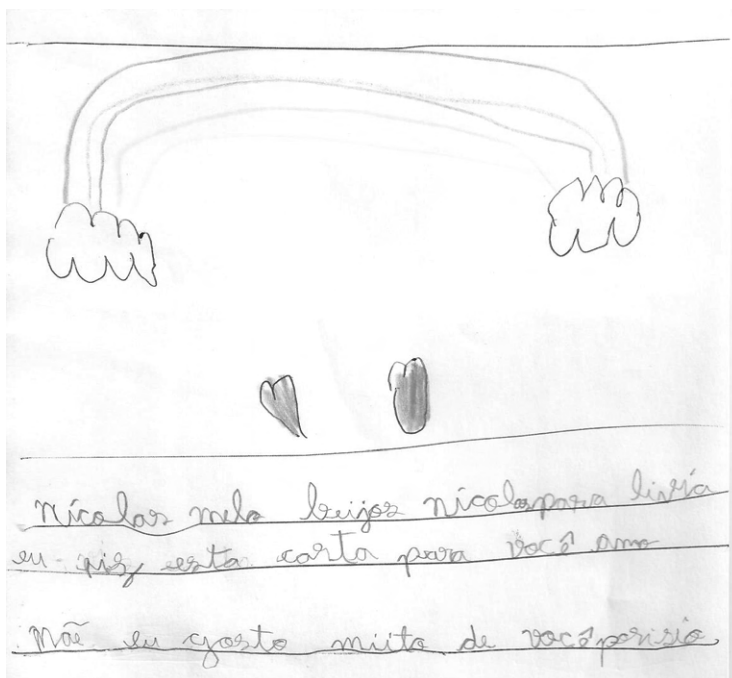 nícolas melo beijos nícolas para lívia
eu fiz esta carta para você amo
mãe eu gosto miito de você porisio